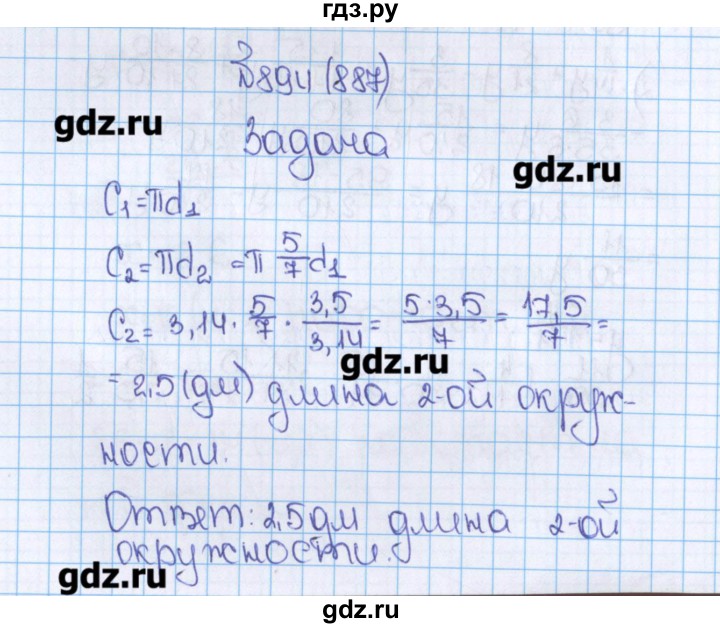 гдз.ру
№894 (887)
gdz.ru
Задача
gdz.ru
C₁=πd₁
C₂=πd₂ =π 5/7 d₁
C₂= 3,14 · 5/7 · 3,5/3,14 = 5·3,5/7 = 17,5/7 =
gdz.ru
= 2,5 (дм) длина 2-ой окруж-
ности.
Ответ: 2,5 дм длина 2-ой
окружности.
gdz.ru
gdz.ru